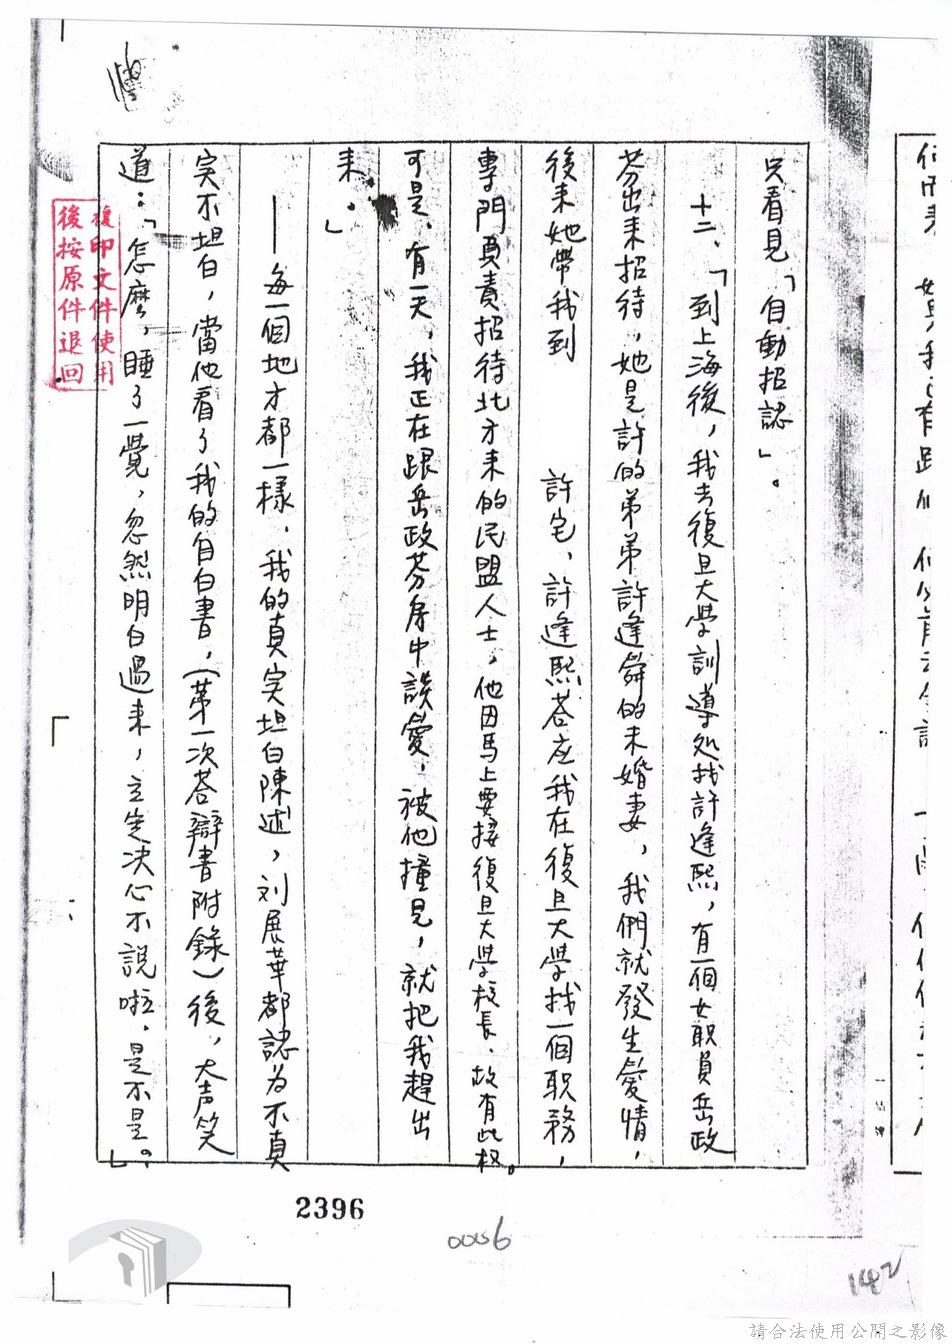 只看見「自動招認」。
十二、「到上海後，我去復旦大學訓導処找許逢熙，有一個女职員岳政
芬出来招待，她是許的弟弟許逢舜的未婚妻，我們就發生愛情，
後来她帶我到　　許宅，許逢熙荅应我在復旦大學找一個职務，
專門負責招待北方来的民盟人士，他因馬上要接復旦大學校長，故有此权。
可是，有一天，我正在跟岳政芬房中談愛，被他撞見，就把我趕出
来。」
——每一個地方都一樣，我的真实坦白陳述，刘展華都認为不真
实不坦白，當他看了我的自白書，（第一次荅辯書附錄）後，大声笑
道：「怎麽，睡了一覺，忽然明白過来，立定决心不說啦，是不是。」
複印文件使用
後按原件退回
2396
0056
182
請合法使用公開之影像